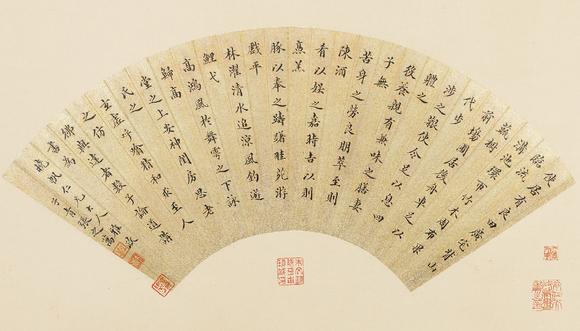 使居有良田廣宅背山
臨流
溝池環帀竹木周布果
前場圃居後舟車足以
代步
涉之難使令足以息四
體之
役養親有兼味之膳妻
子無
苦身之勞良朋萃至則
陳酒
肴以娛之嘉時吉日則
烹羔
豚以奉之躊躇畦苑游
戲平
林濯清水追涼風釣游
鯉弋
高鴻風於舞雩之下詠
歸高
堂之上安神閨房思老
氏之
玄虛呼吸精和求至人
之仿
佛與達者數子論道講
書為
曉帆仁兄大人雅政
子青張之萬